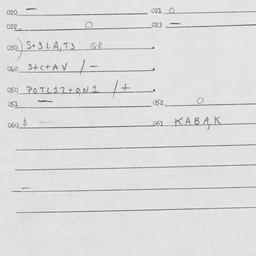 020 — 021 0
022 0 023 —
030) S+3LA,T3 QR
040 S+C+AV /-
050 POTL12+0,N2 /+
051 — 052 0
060 $ 061 KABA,K
—